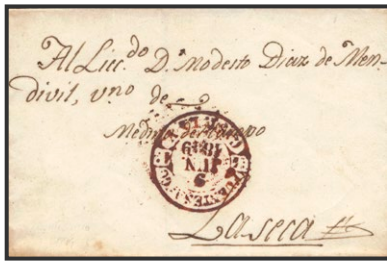 Al Licc.do D.n Modesto Diaz de Men-
divil, v.no de
Medina del Campo
9
JUN
1849
La seca